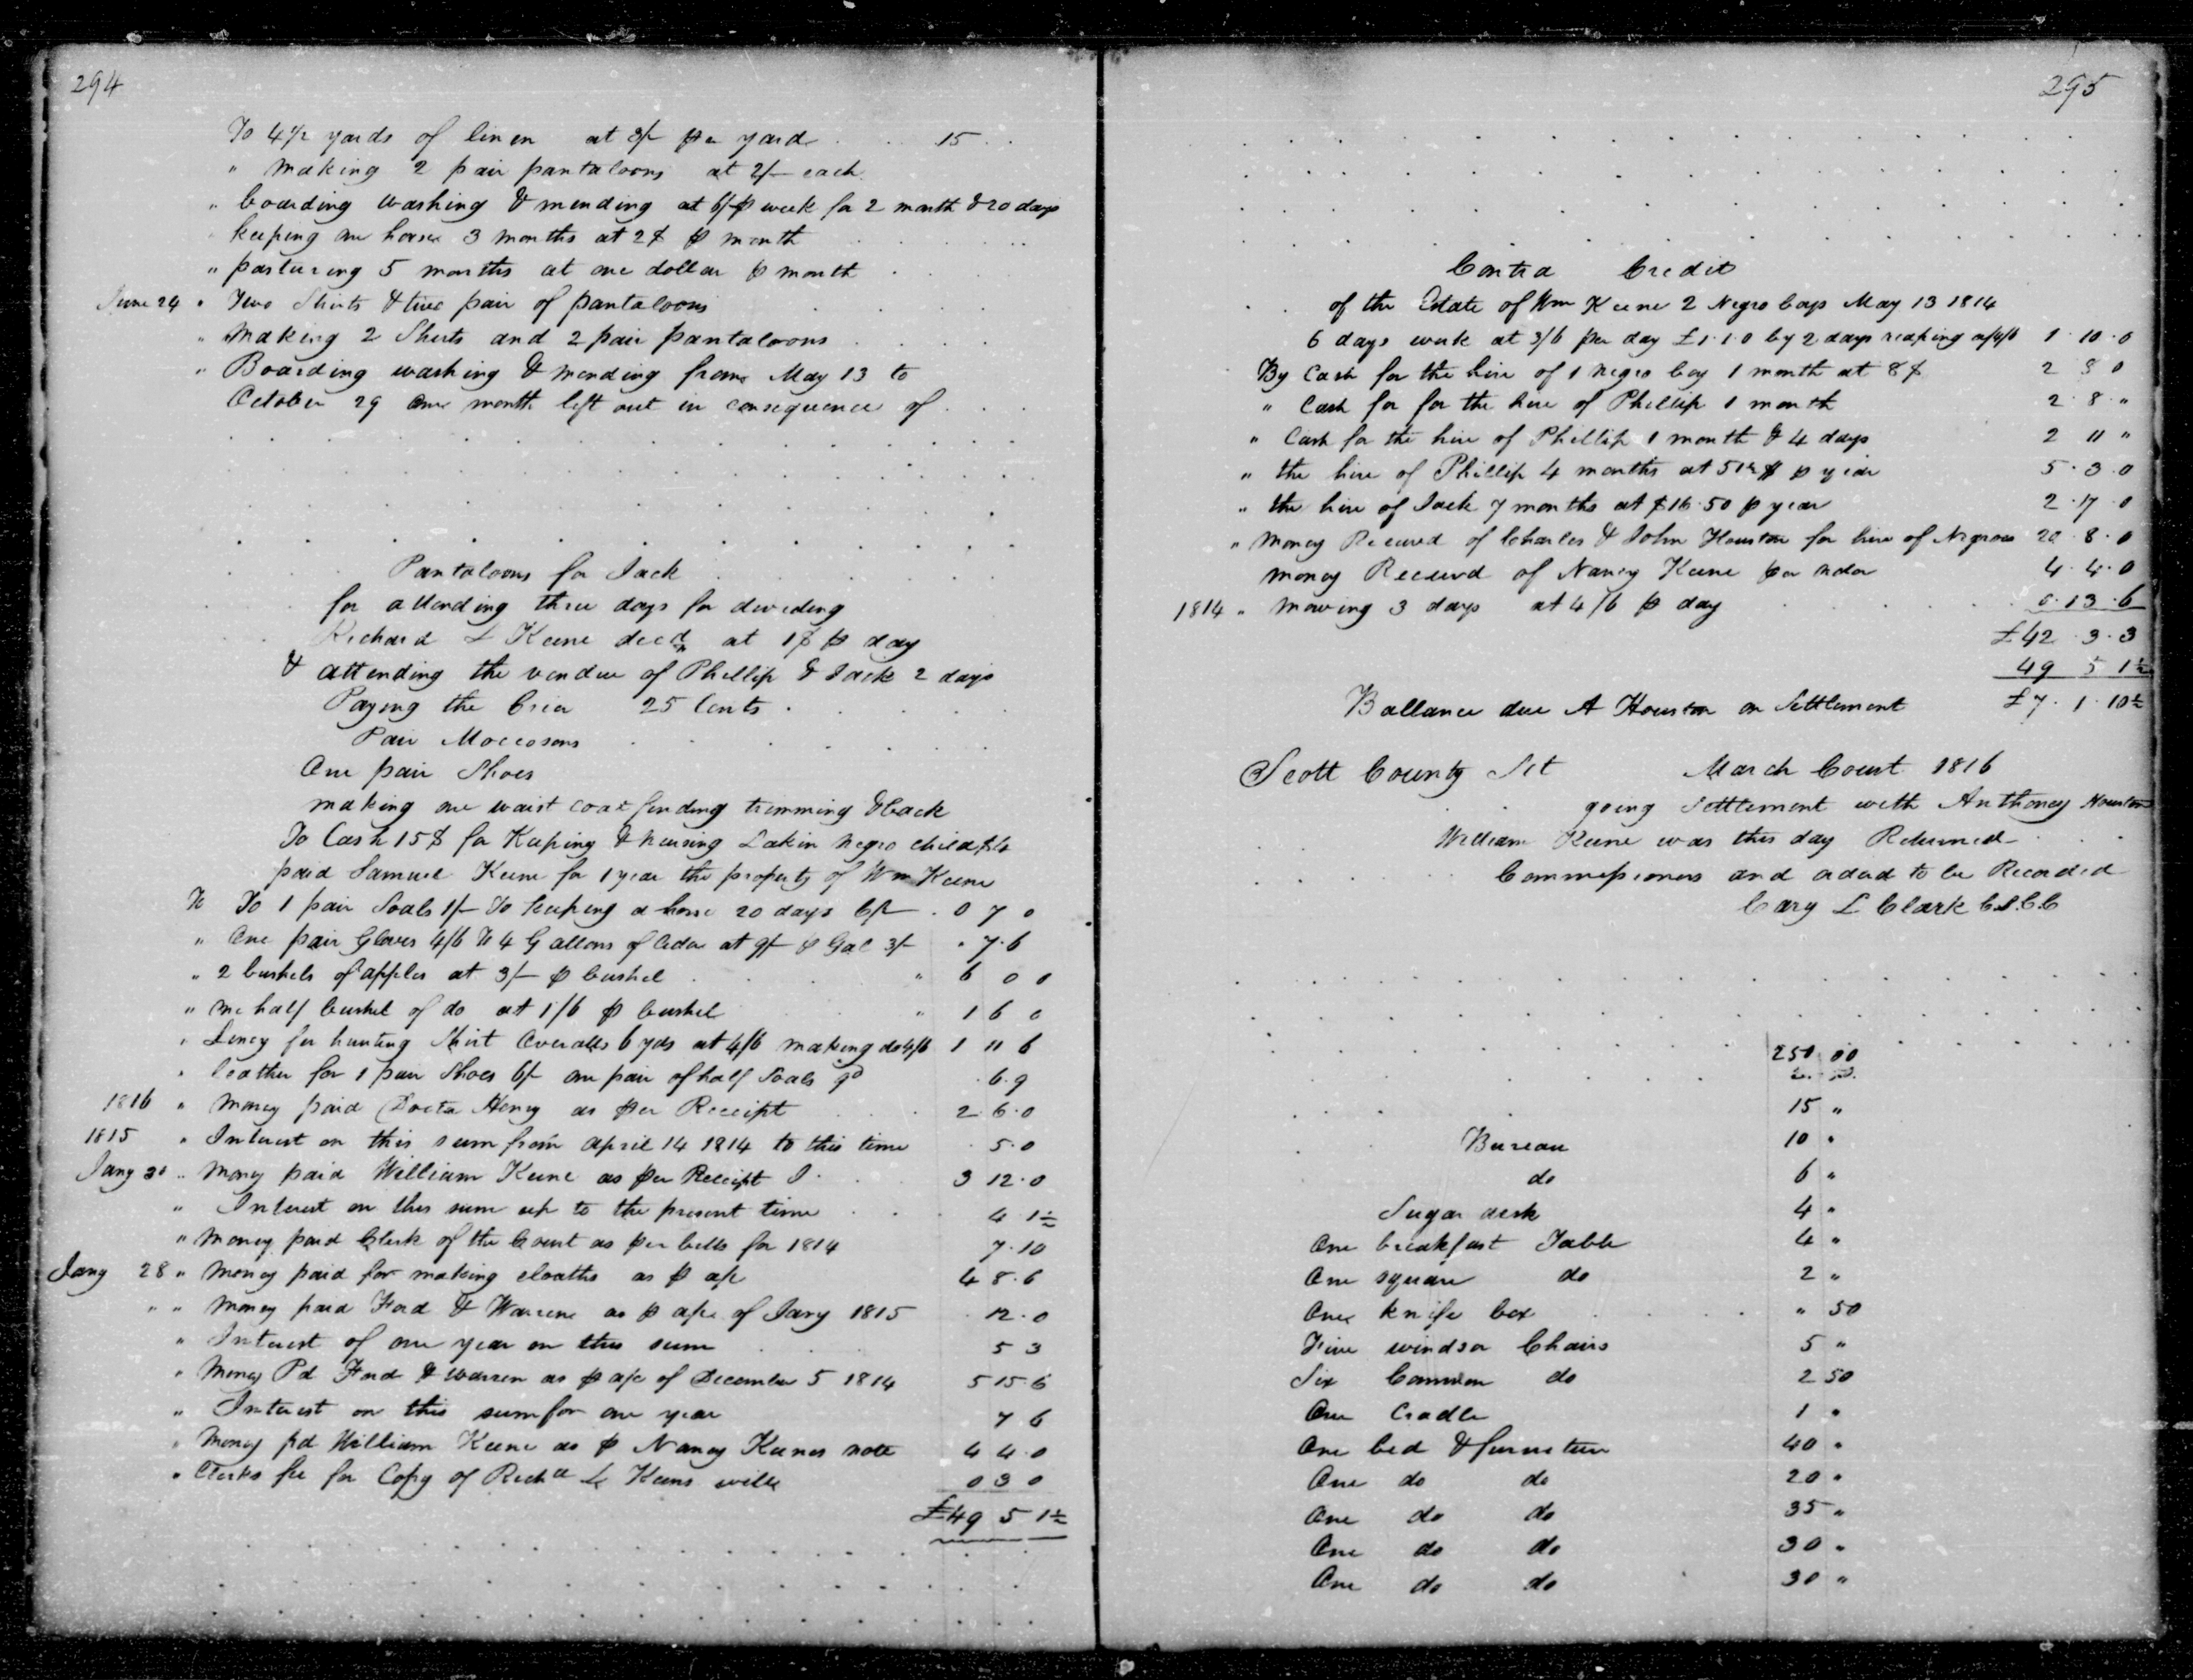 294
To 4½ yards of linen at 3/- per yard 15
" making 2 pair pantaloons at 2/- each
" boarding washing & mending at 6/- p week for 2 month & 20 days
" keeping one horse 3 months at 2$ p month
" pasturing 5 months at one dollar p month
June 24 " Two Shirts & two pair of pantaloons
" making 2 Shirts and 2 pair pantaloons
" Boarding washing & mending from May 13 to
October 29 one month left out in consequence of
Pantaloons for Jack
for attending three days for dividing
Richard L Keene decd at 1$ p day
& attending the vendue of Phillip & Jack 2 days
Paying the Crier 25 Cents
Pair Moccosons
One pair Shoes
making one waist coat finding trimming & back
To Cash 15$ for Keeping & nursing Lakin negro child
paid Samuel Keene for 1 year the property of Wm Keene
To To 1 pair Soals 1/- To keeping a horse 20 days 6/- 0 7 0
" One pair Gloves 4/6 To 4 Gallons of Cider at 9/- p Gal 3/- " 7.6
" 2 bushels of apples at 3/- p bushel " 6 0 0
" one half bushel of do at 1/6 p bushel " 1 6 0
" Lincy for hunting Shirt Overalls 6 yds at 4/6 making do 4/6 1 11 6
" leather for 1 pair Shoes 6/- one pair of half Soals 9d .6.9
1816 " money paid Docta Henry as per Receipt 2.6.0
1815 " Interest on this sum from april 14 1814 to this time .5.0
Jany 30 " Money paid William Keene as per Receipt 3 12.0
" Interest on this sum up to the present time 4 1½
" Money paid Clerk of the Court as per bills for 1814 7.10
Jany 28 " Money paid for making cloaths as p a/c 4 8.6
" " Money paid Ford & Warren as p a/c of Jany 1815 .12.0
" Interest of one year on this sum 5 3
" Money Pd Ford & Warren as p a/c of December 5 1814 5 15 6
" Interest on this sum for one year 7 6
" Money pd William Keene as p Nancy Keenes note 4 4.0
" Clerks fee for Copy of Richd L Keens will 0 3 0
£49 5 1½
295
Contra Credit
of the Estate of Wm Keene 2 Negro boys May 13 1814
6 days work at 3/6 per day £1.1.0 by 2 days reaping a/4/6 1.10.0
By Cash for the hire of 1 negro boy 1 month at 8$ 2 8 0
" Cash for for the hire of Phillip 1 month 2.8."
" Cash for the hire of Phillip 1 month & 4 days 2 11 "
" the hire of Phillip 4 months at 51½ $ p year 5.3.0
" the hire of Jack 7 months at $16.50 p year 2.17.0
" Money Received of Charles & John Houston for hire of Negroes 20.8.0
money Received of Nancy Keene per order 4.4.0
1814 " mowing 3 days at 4/6 p day 0.13.6
£42.3.3
49 5 1½
Ballance due A Houston on Settlement £7.1.10½
Scott County Sct March Court 1816
going Settlement with Anthoney Houston
William Keene was this day Returned
Commissioners and ordered to be Recorded
Cary L Clark C.S.C.C
250 00
15 "
Bureau 10 "
do 6 "
Sugar desk 4 "
One breakfast Table 4 "
One square do 2 "
One knife box " 50
Five windsor Chairs 5 "
Six Common do 2 50
One Cradle 1 "
One bed & furniture 40 "
One do do 20 "
One do do 35 "
One do do 30 "
One do do 30 "